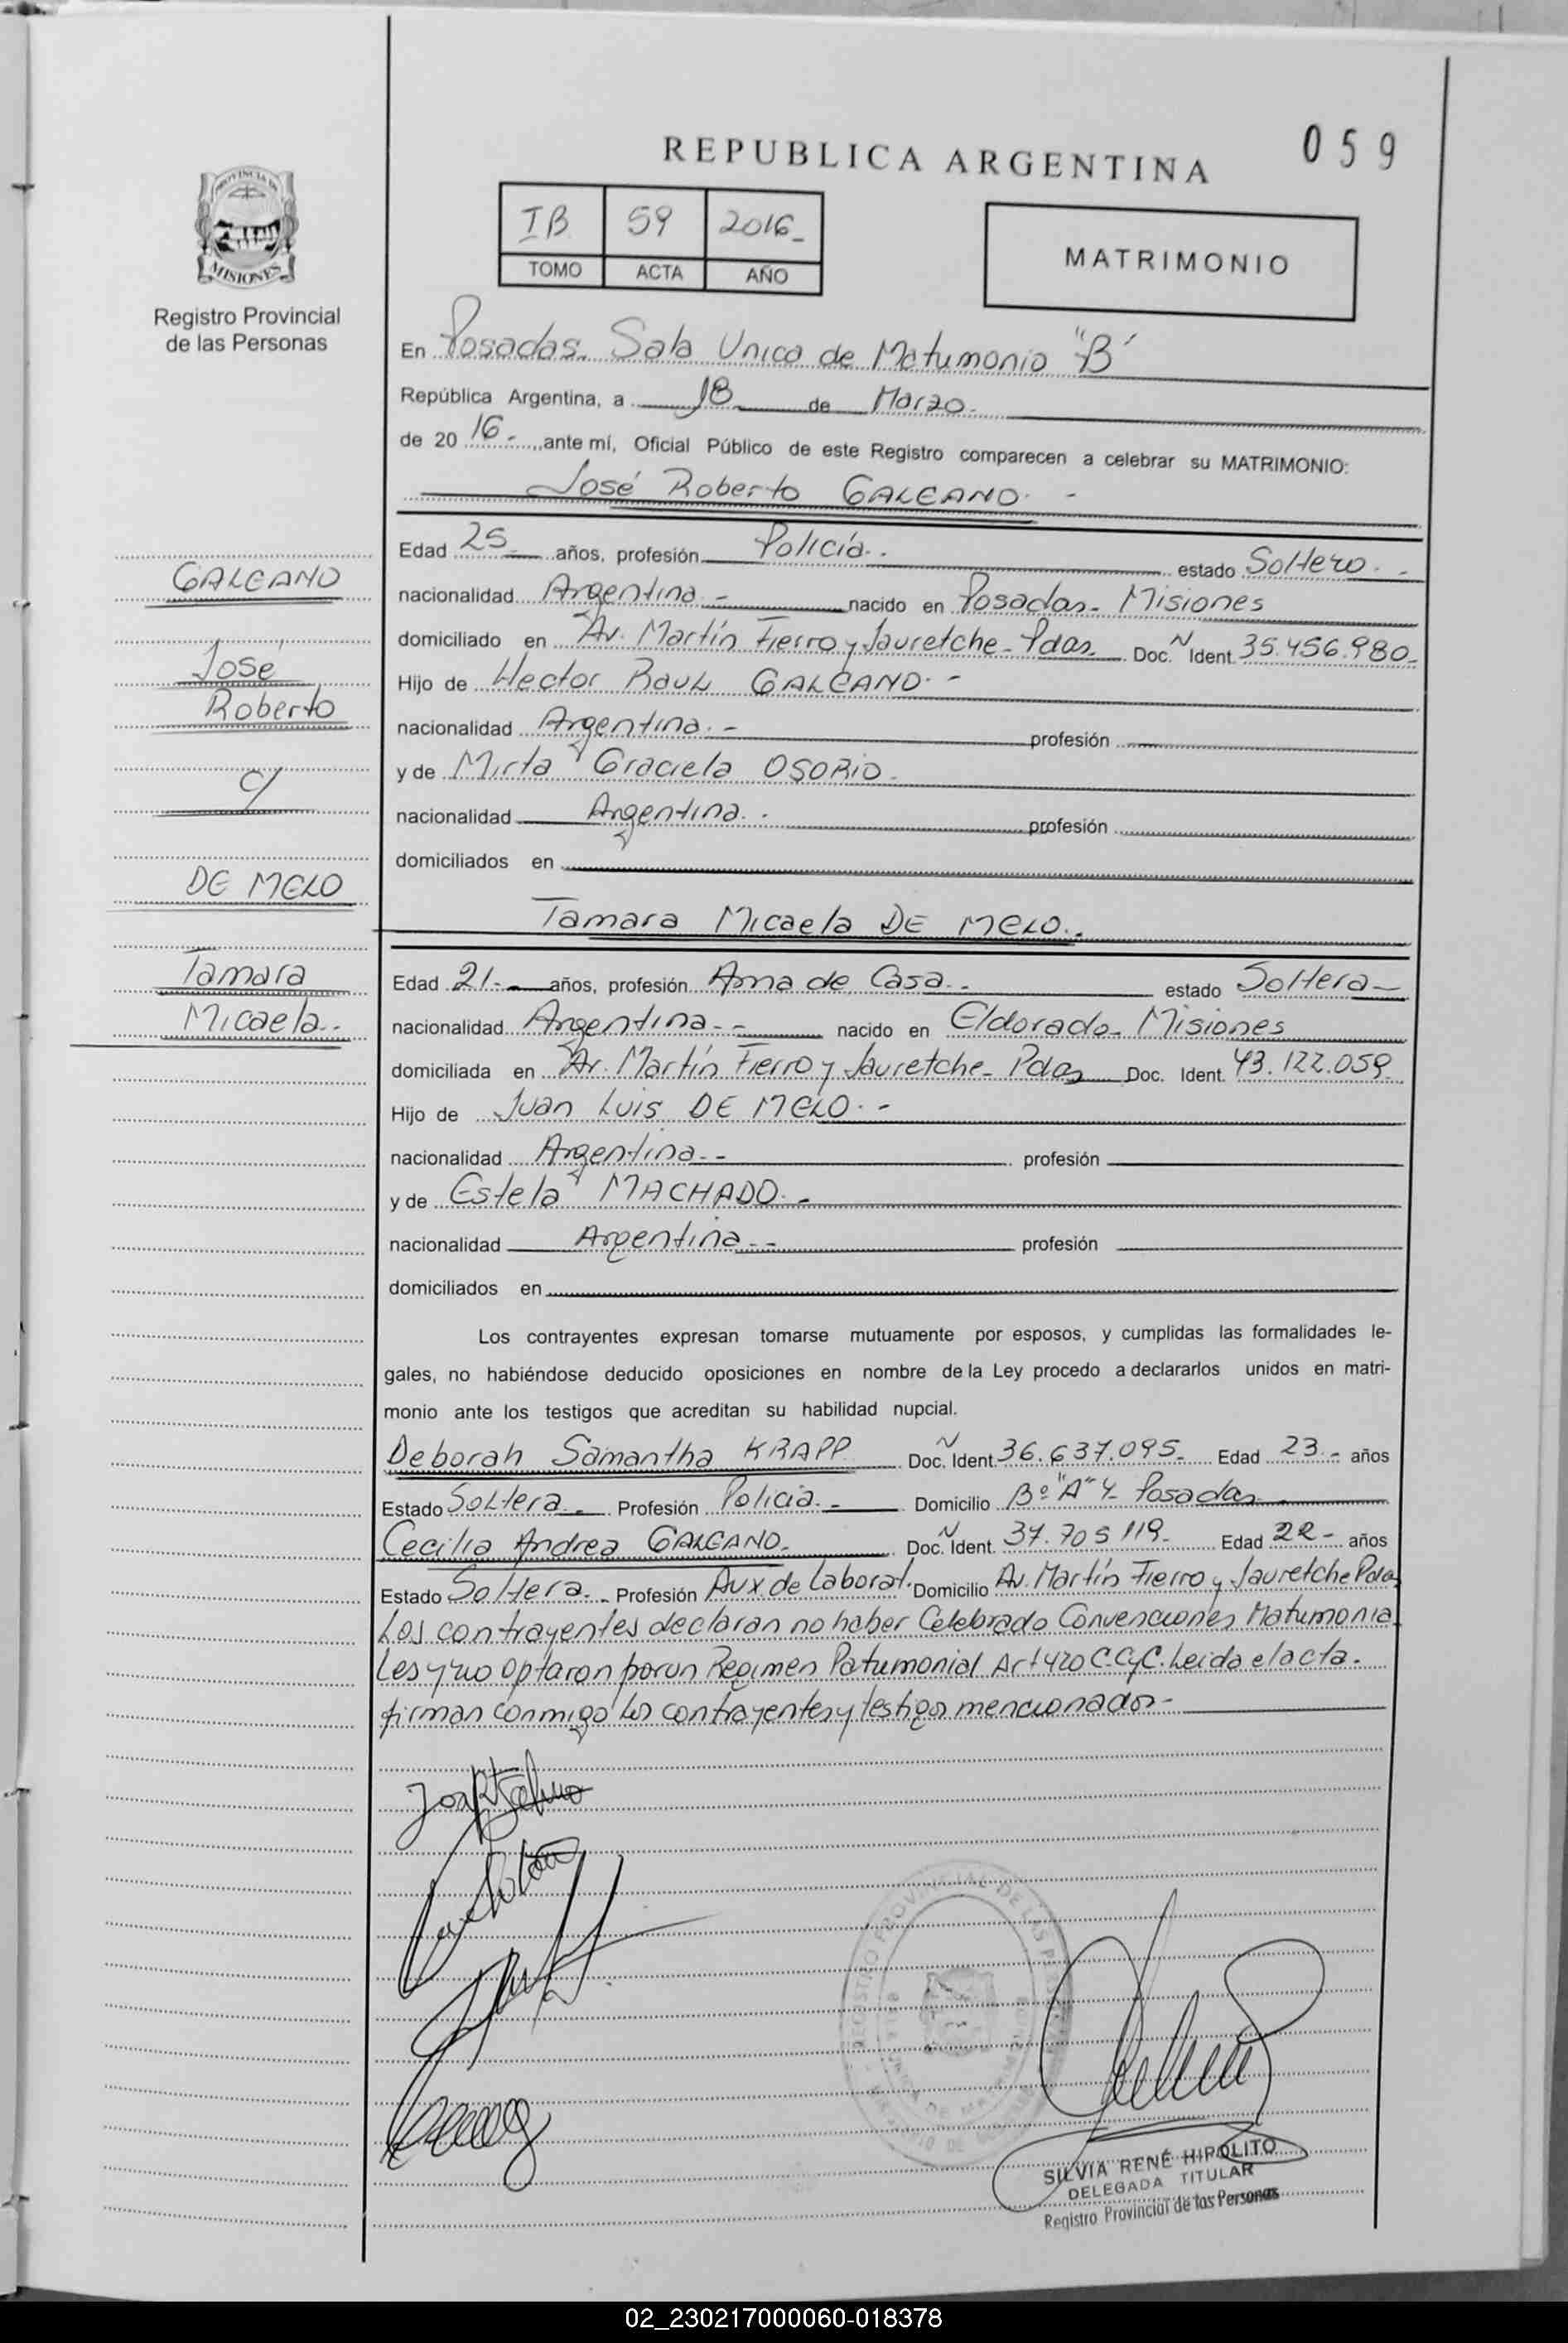 REPUBLICA ARGENTINA
059
PROVINCIA DE
MISIONES
Registro Provincial
de las Personas
IB 59 2016-
TOMO ACTA AÑO
MATRIMONIO
En Posadas. Sala Unica de Matrimonio "B"
República Argentina, a 18 de Marzo.
de 20 16- ante mí, Oficial Público de este Registro comparecen a celebrar su MATRIMONIO:
José Roberto GALEANO. -
GALEANO
José
Roberto
c/
DE MELO
Tamara
Micaela.-
Edad 25 años, profesión Policía.. estado Soltero. -
nacionalidad Argentina.- nacido en Posadas- Misiones
domiciliado en Av. Martín Fierro y Jauretche- Pdas. Doc. N Ident. 35.456.980-
Hijo de Hector Raul GALEANO. -
nacionalidad Argentina. - profesión
y de Mirta Graciela OSORIO.
nacionalidad Argentina. . profesión
domiciliados en
Tamara Micaela DE MELO..
Edad 21.- años, profesión Ama de Casa.. estado Soltera-
nacionalidad Argentina.- nacido en Eldorado- Misiones
domiciliada en Av. Martín Fierro y Jauretche- Pdas Doc. Ident. 43.122.059
Hijo de Juan Luis DE MELO. -
nacionalidad Argentina.- profesión
y de Estela MACHADO. -
nacionalidad Argentina.- profesión
domiciliados en
Los contrayentes expresan tomarse mutuamente por esposos, y cumplidas las formalidades le-
gales, no habiéndose deducido oposiciones en nombre de la Ley procedo a declararlos unidos en matri-
monio ante los testigos que acreditan su habilidad nupcial.
Deborah Samantha KRAPP Doc. N Ident. 36.637.095- Edad 23.- años
Estado Soltera.- Profesión Policia.- Domicilio Bº "A" 4- Posadas
Cecilia Andrea GALEANO. Doc. N Ident. 37.705119- Edad 22- años
Estado Soltera.- Profesión Aux. de Laborat. Domicilio Av. Martín Fierro y Jauretche Pdas
Los contrayentes declaran no haber Celebrado Convenciones Matrimonia
les y no optaron por un Regimen Patrimonial Art 420 C.C.y C. Leida el acta.
firman conmigo los contrayentes y testigos mencionados-
REGISTRO PROVINCIAL DE LAS PERSONAS
SILVIA RENÉ HIPOLITO
DELEGADA TITULAR
Registro Provincial de las Personas
02_230217000060-018378